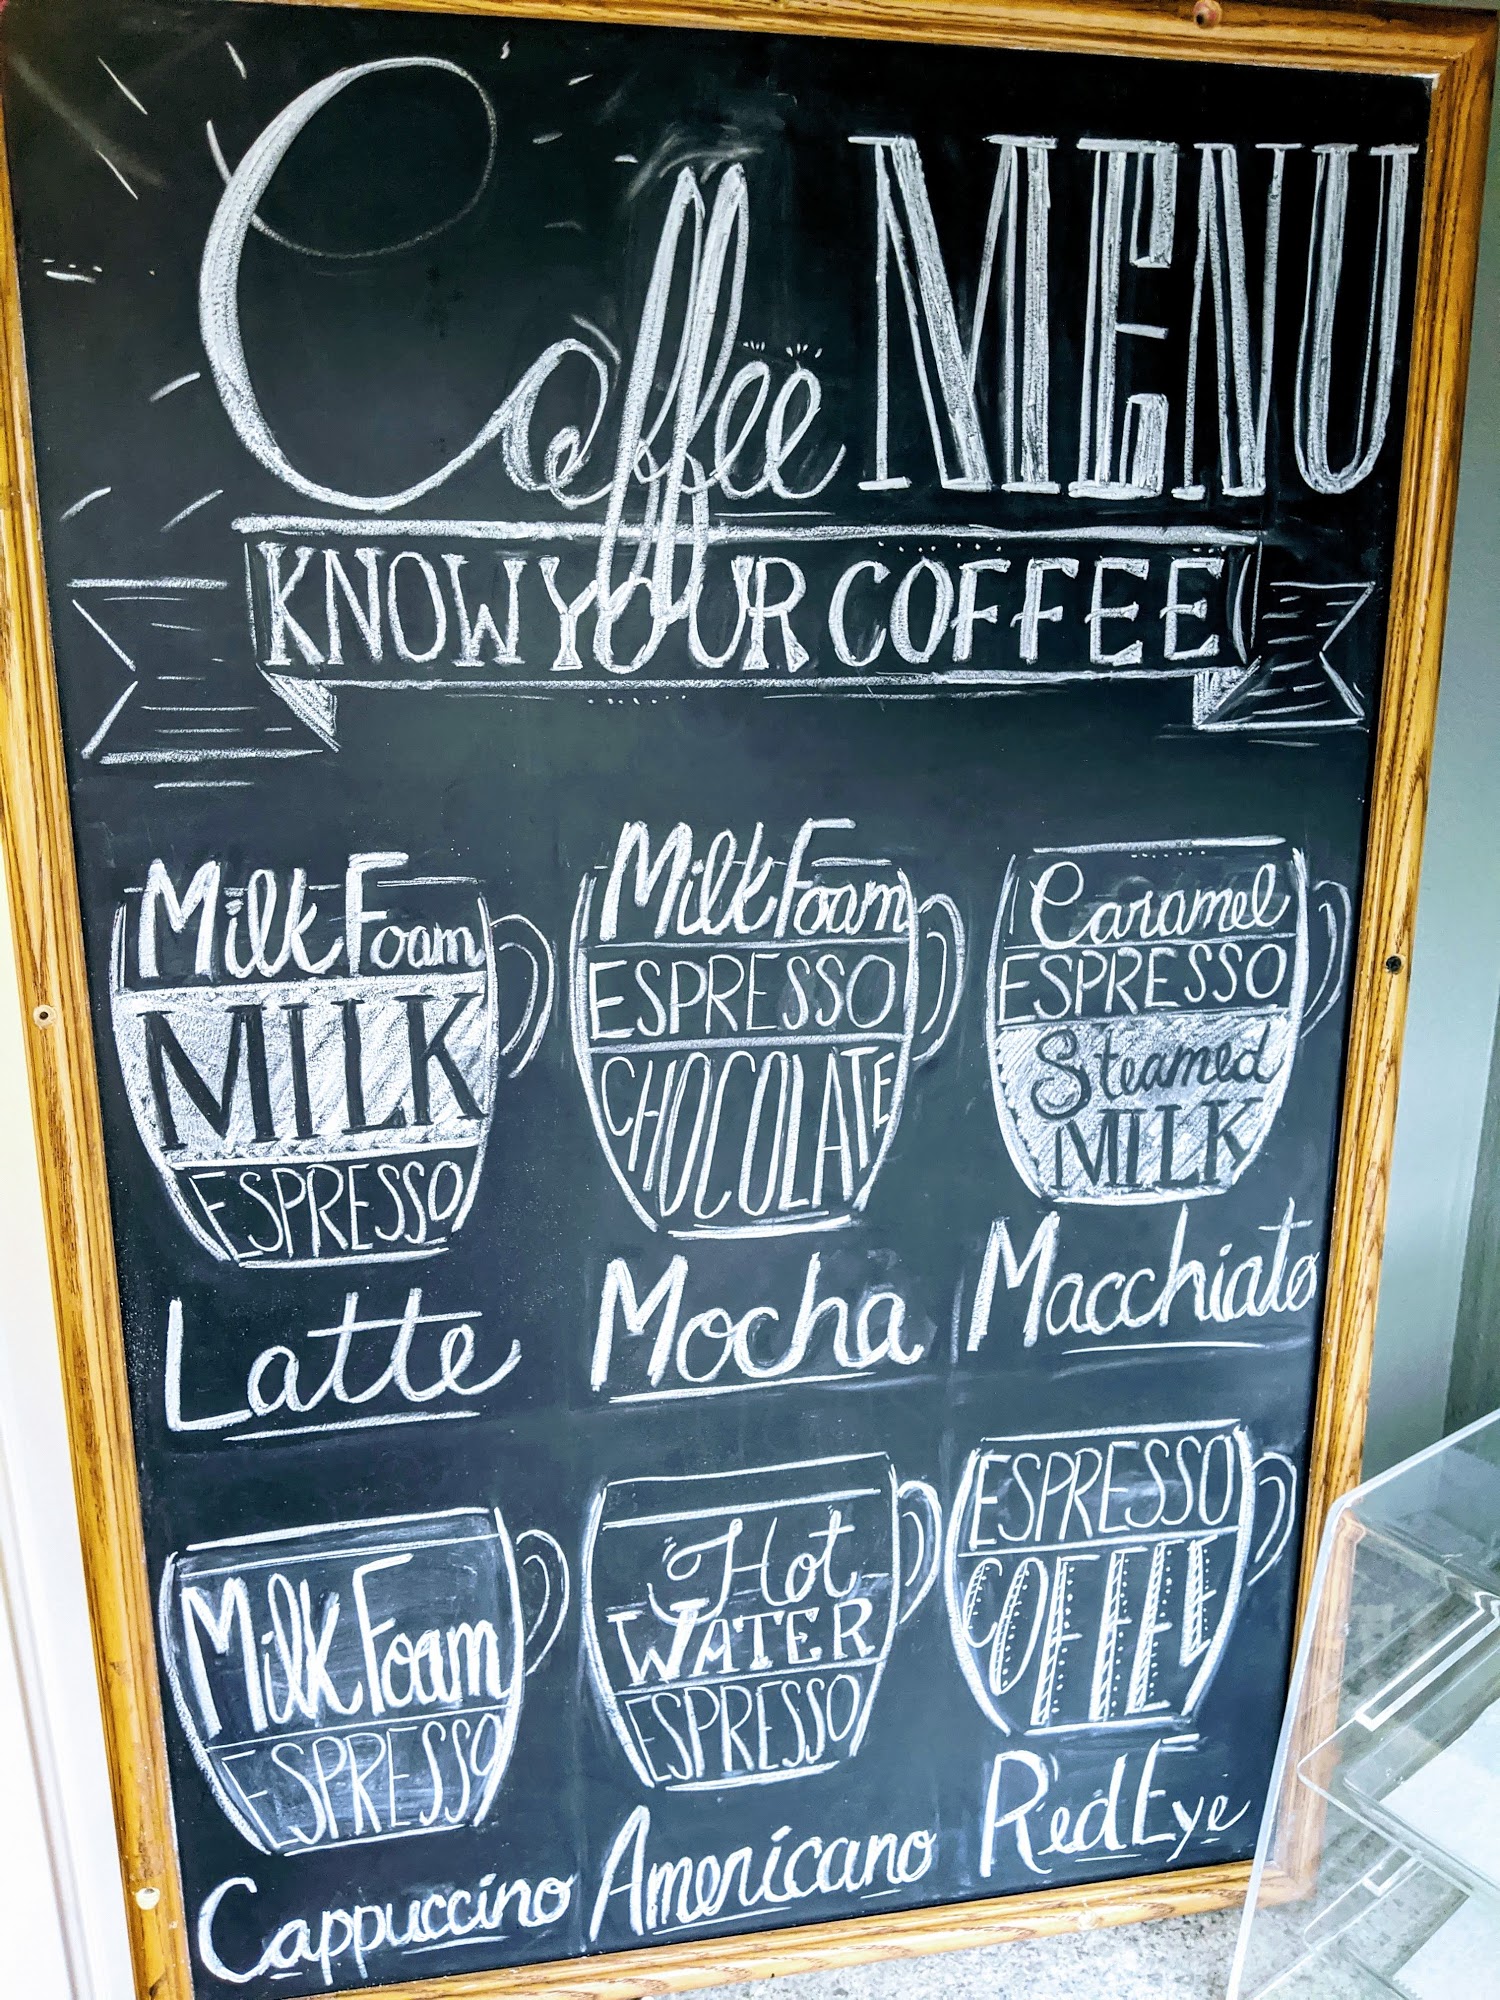 Coffee MENU
KNOW YOUR COFFEE
Milk Foam
MILK
ESPRESSO
Latte
Milk Foam
ESPRESSO
CHOCOLATE
Mocha
Caramel
ESPRESSO
Steamed
MILK
Macchiato
Milk Foam
ESPRESSO
Cappuccino
Hot
WATER
ESPRESSO
Americano
ESPRESSO
COFFEE
Red Eye